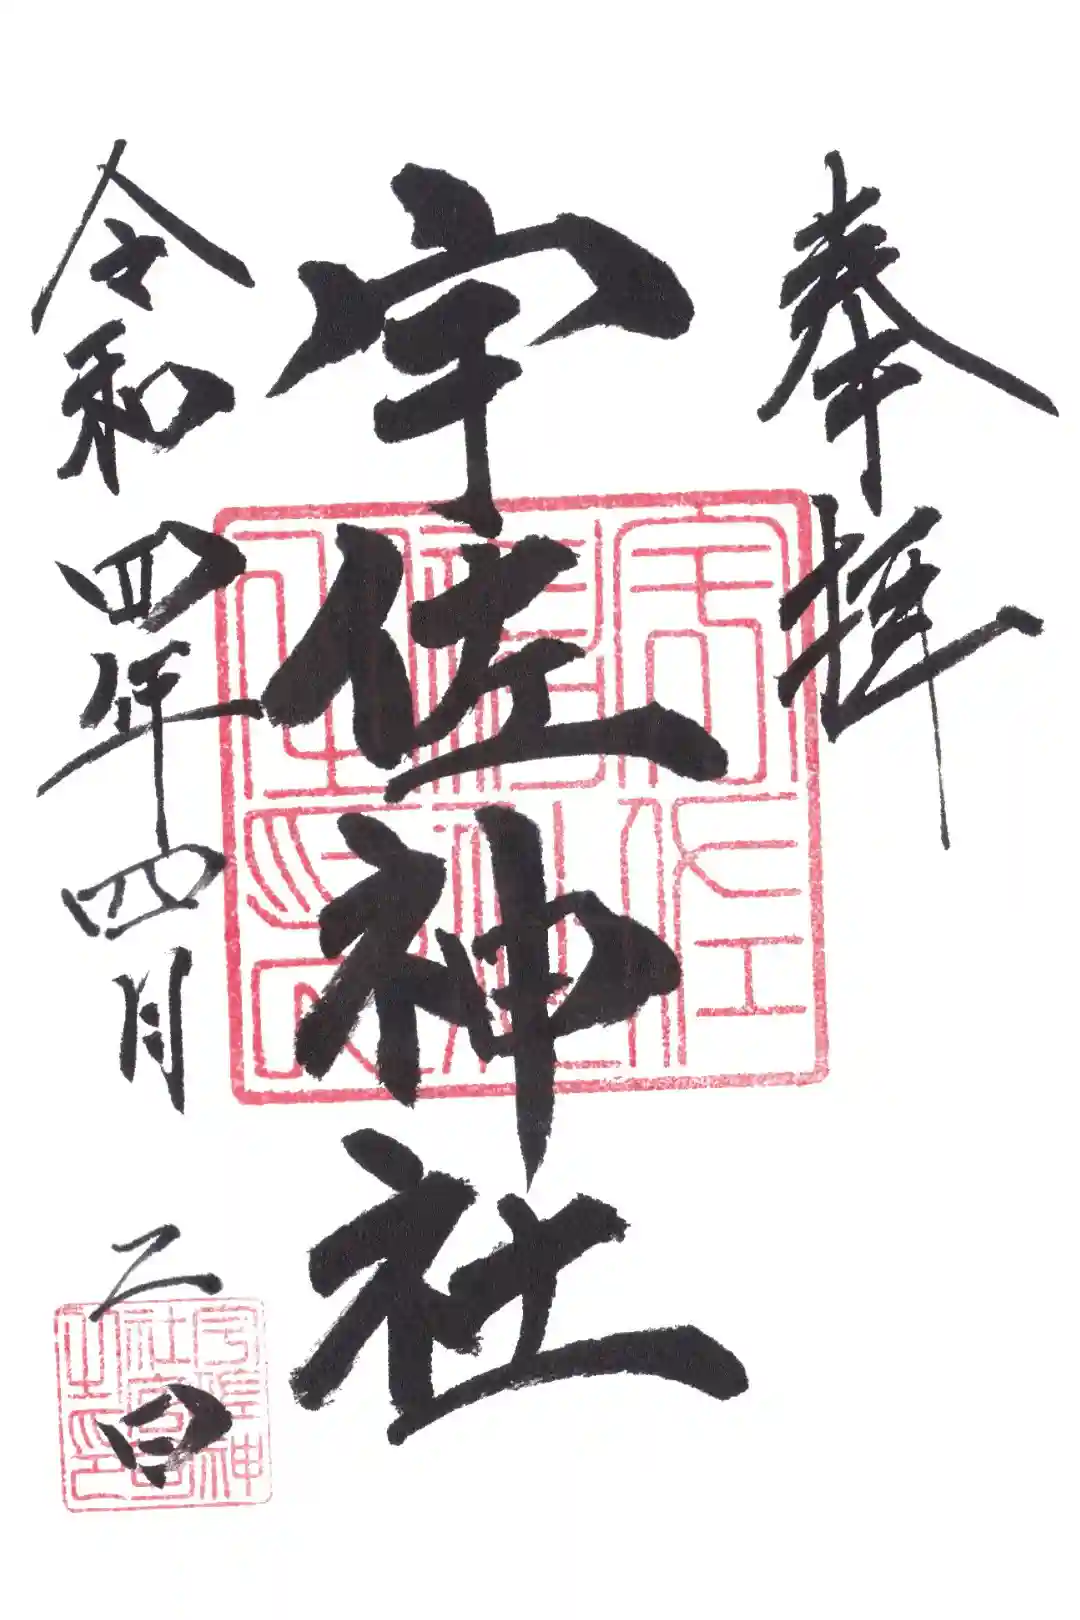 奉拝
宇佐神社
令和四年四月二日
宇佐
神社
之印
宇佐神
社宮司
之印